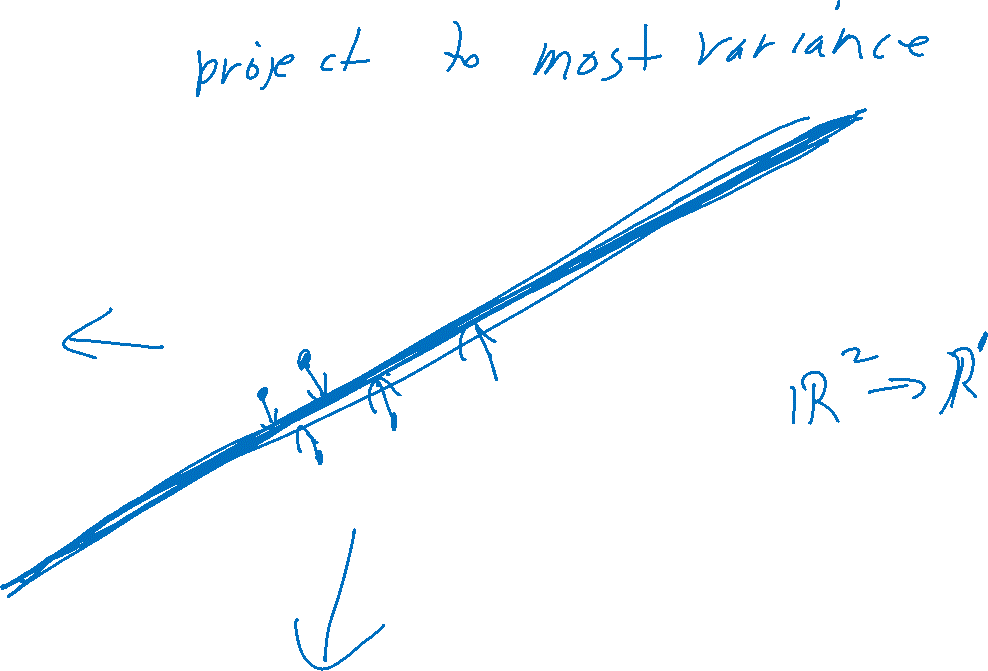 project to most variance
ℝ² → ℝ¹